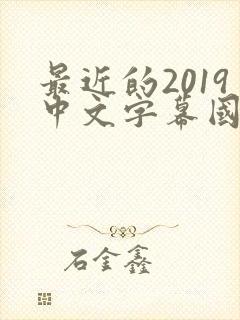 最近的2019
中文字幕國
石金鑫